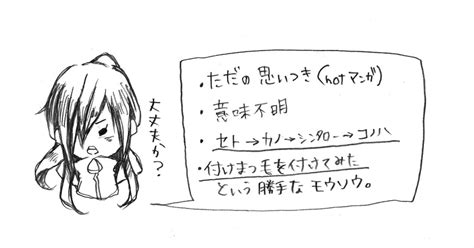 ・ただの思いつき(notマンガ)
・意味不明
・セト→カノ→シンタロー→コノハ
・付けまつ毛を付けてみた
という勝手なモウソウ。
大丈夫か?